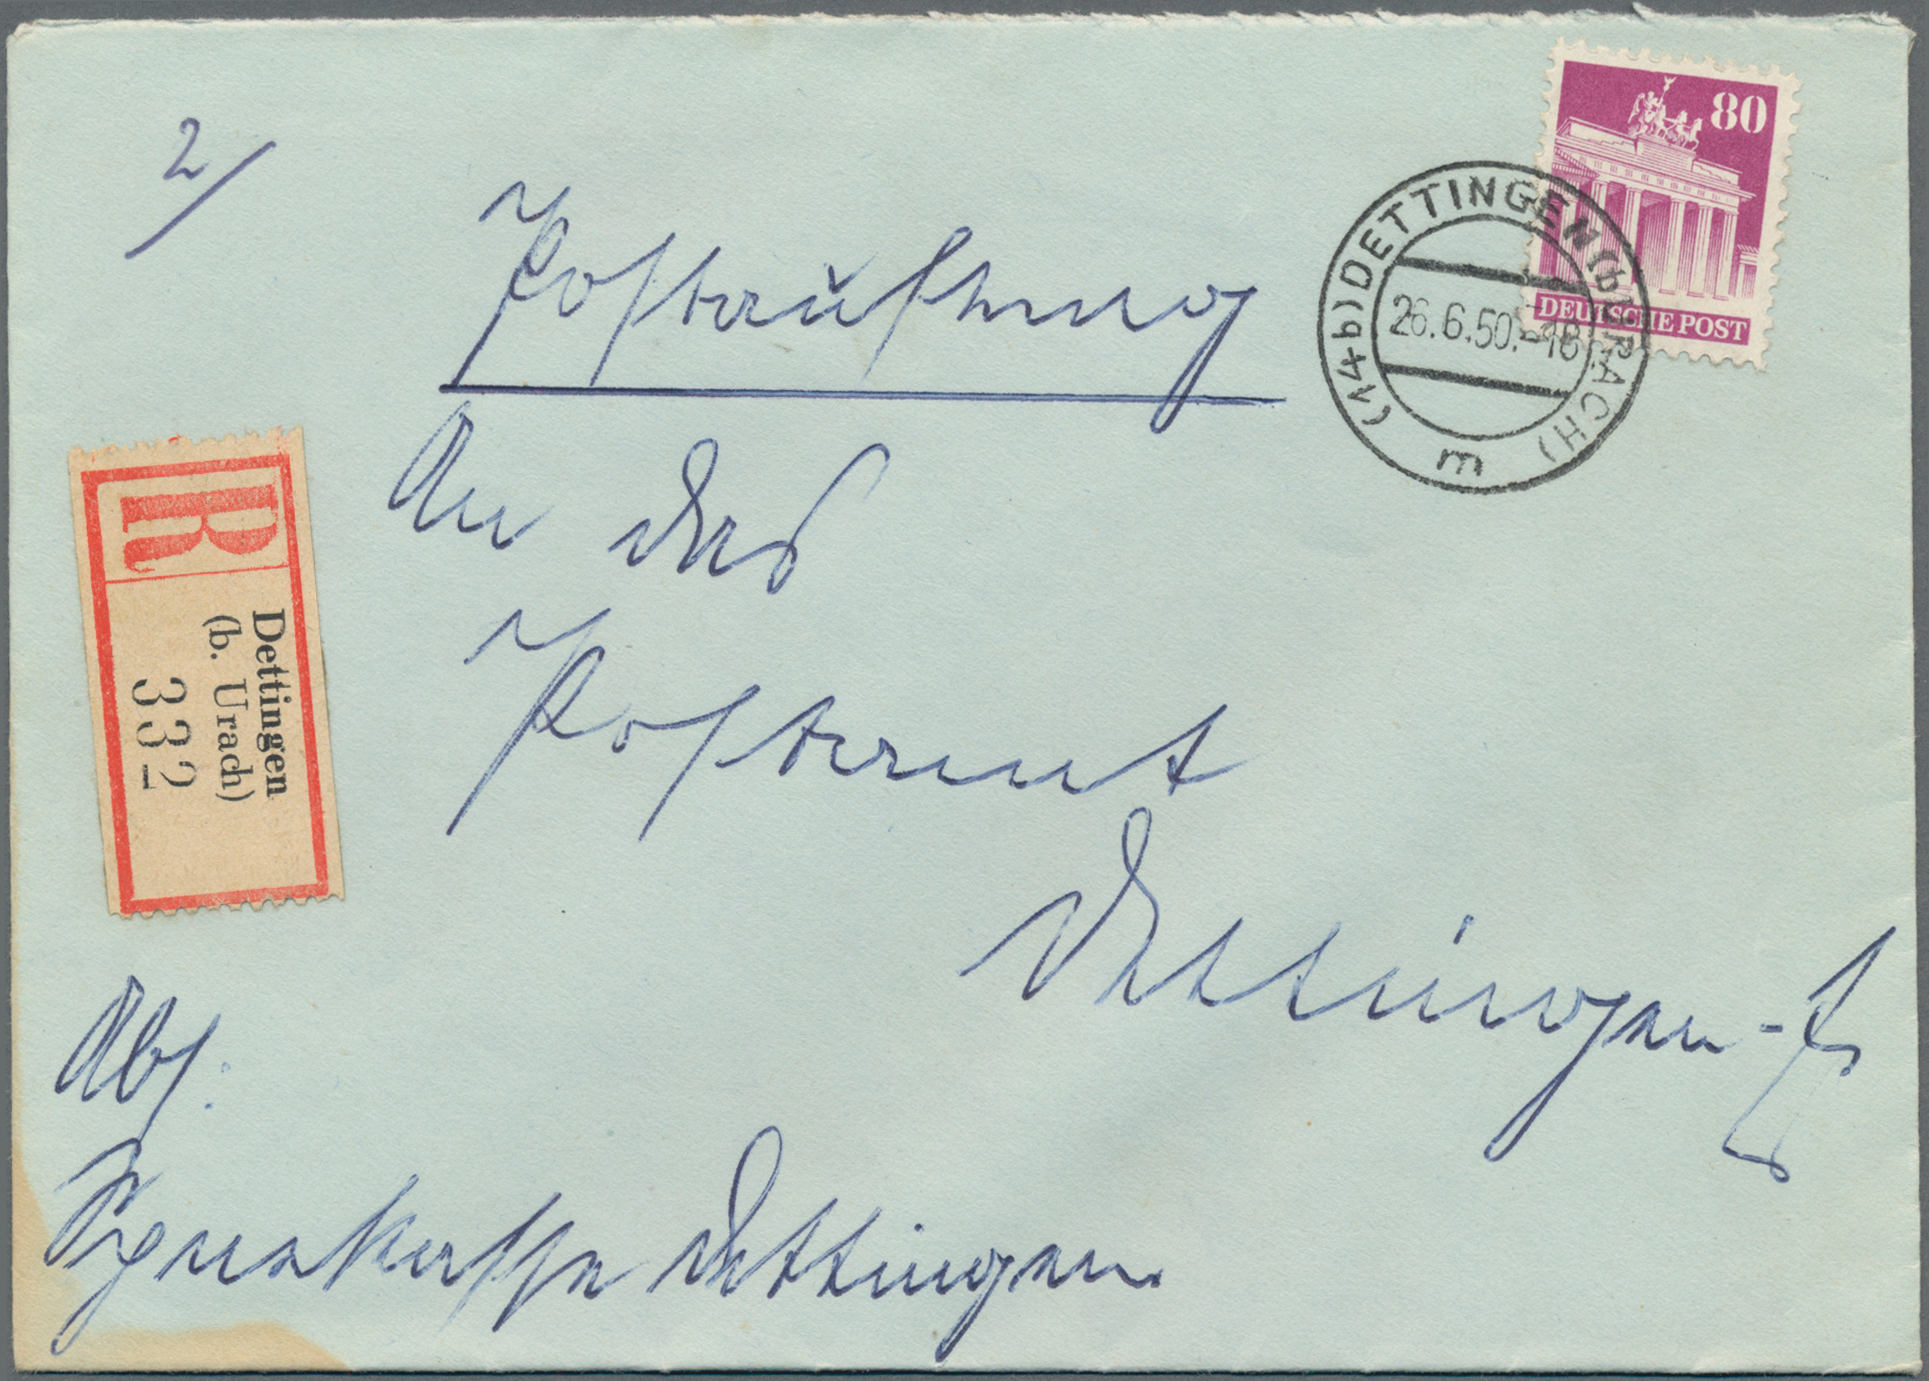 2/
80
DEUTSCHE POST
(14b) DETTINGEN (b URACH)
26.6.50.-18
m
An das
Postamt
Dettingen-E
R
Dettingen
(b. Urach)
332
Abs.
Dettingen